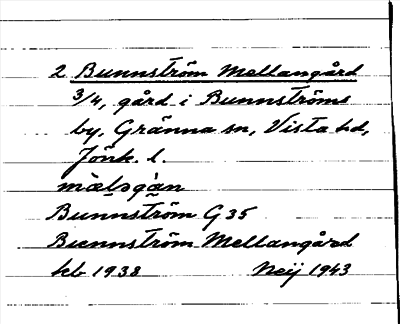 2 Bunnström Mellangård
3/4, gård i Bunnströms
by, Gränna sn, Vista hd,
Jönk. l.
mæ̀lsgàn
Bunnström G 35
Bunnström Mellangård
kb 1938 Neij 1943